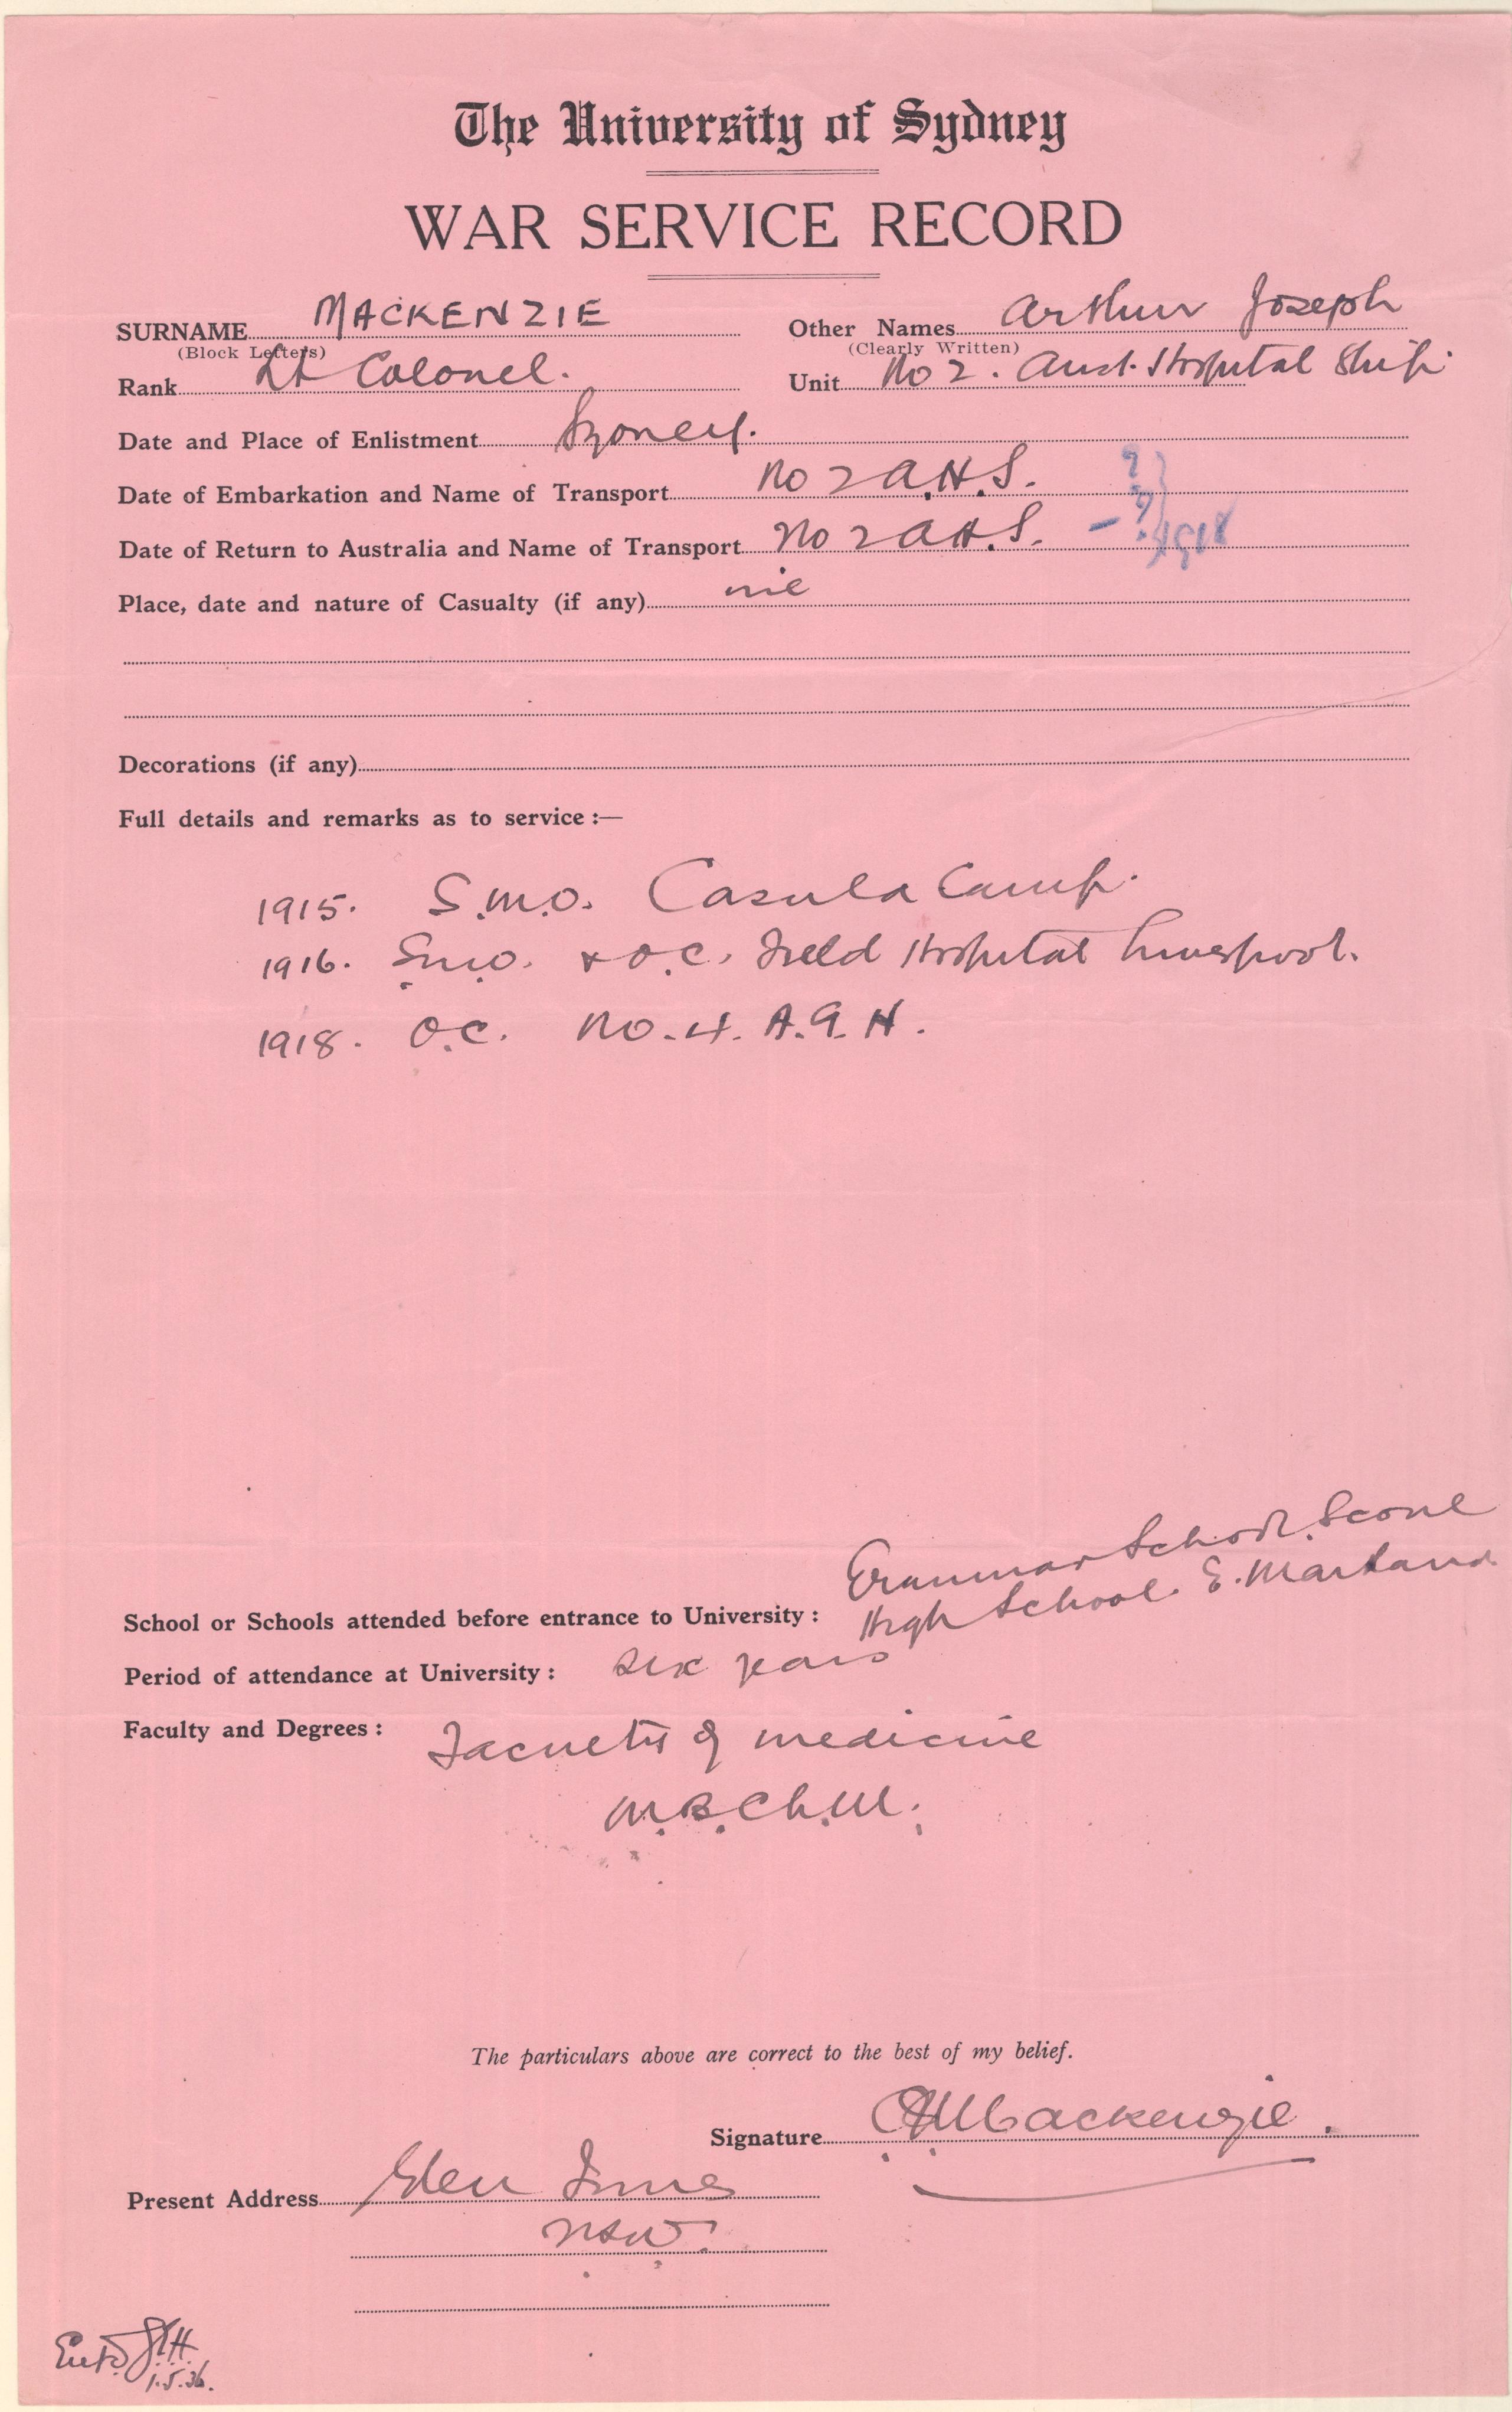 The University of Sydney
WAR SERVICE RECORD
SURNAME MACKENZIE Other Names Arthur Joseph
(Block Letters) (Clearly Written)
Rank Lt Colonel. Unit No 2. Aust. Hospital Ship
Date and Place of Enlistment Sydney.
Date of Embarkation and Name of Transport No 2 A.H.S. ?
Date of Return to Australia and Name of Transport No 2 A.H.S. - ?
Place, date and nature of Casualty (if any) nil
Decorations (if any)
Full details and remarks as to service :—
1915. S.M.O. Casula Camp.
1916. S.M.O. & O.C. Field Hospital Liverpool.
1918. O.C. No. 4. A.G.H.
Grammar School. Scone
School or Schools attended before entrance to University : High School. E. Maitland
Period of attendance at University : six years
Faculty and Degrees : Faculty of medicine
M.B. Ch.M.
The particulars above are correct to the best of my belief.
Signature AJMackenzie.
Present Address Glen Innes
NSW.
Entd
1.5.36.